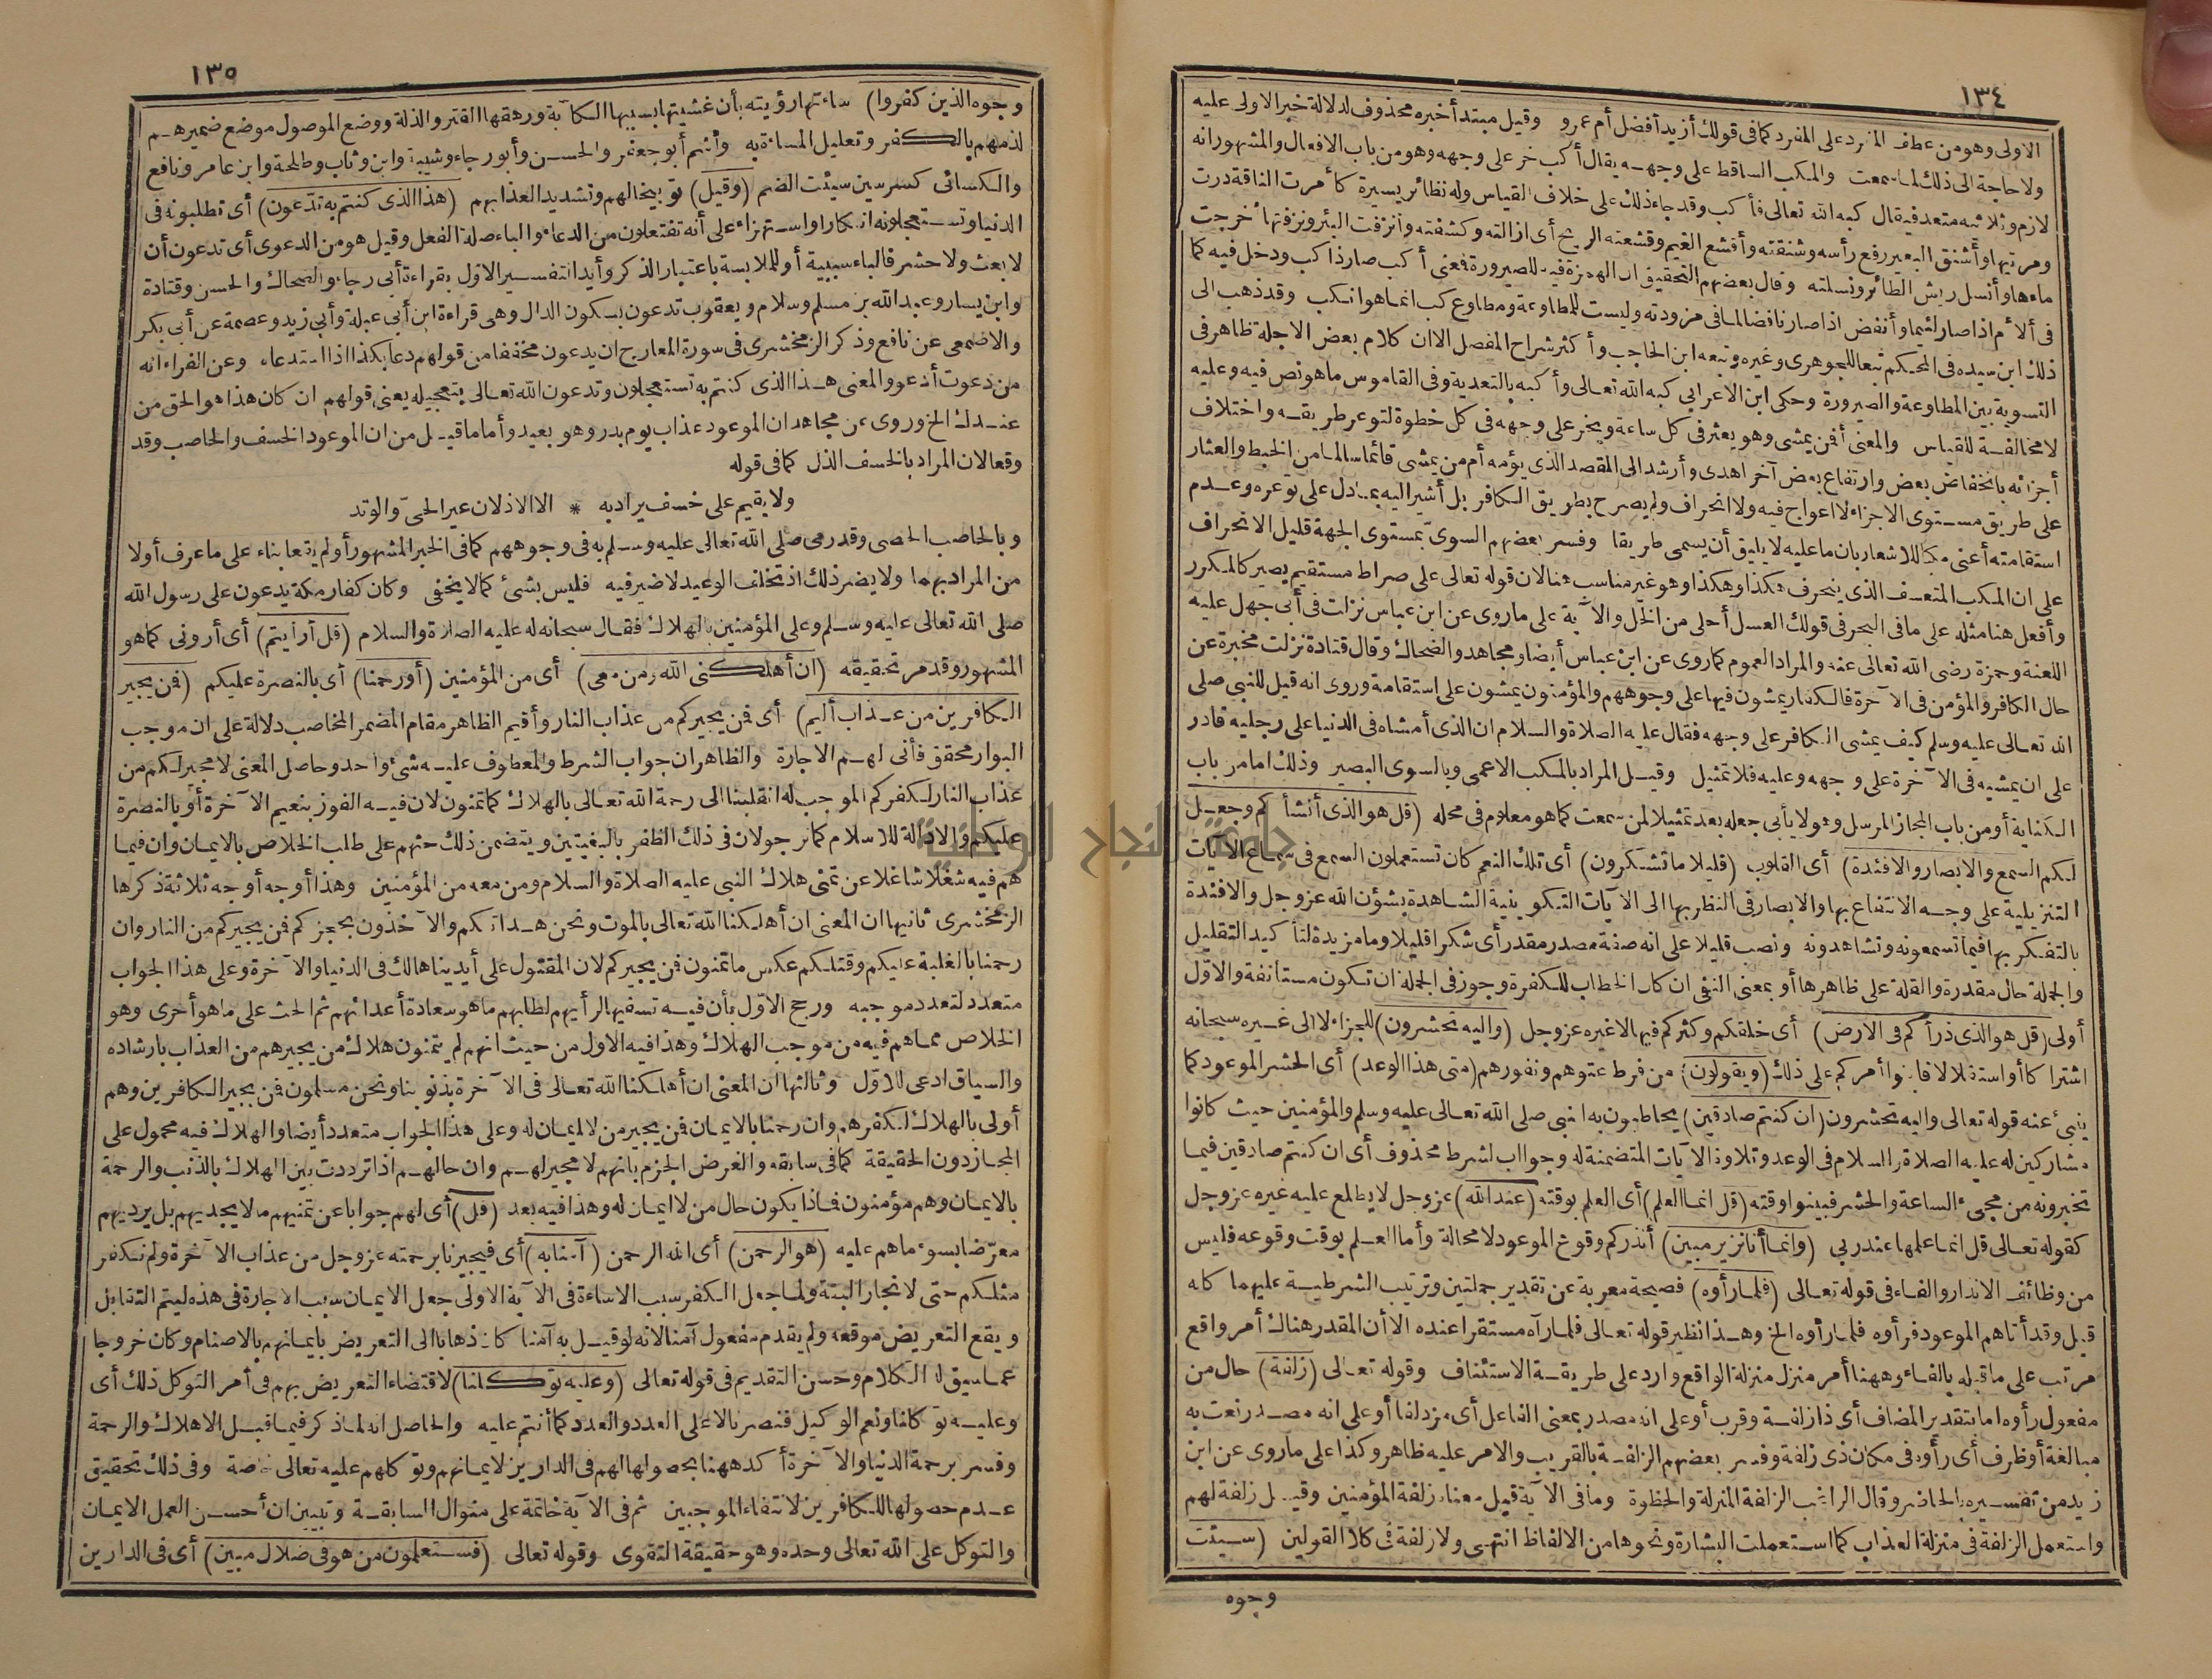 ١٣٤
الاولى وهو من عطف المفرد على المفرد كما فى قولك أزيد أفضل أم عمرو وقيل مبتدأ خبره محذوف لدلالة خبر الاولى عليه
ولا حاجة الى ذلك لما سمعت والمكب الساقط على وجهه يقال أكب خر على وجهه وهو من باب الافعال والمشهور انه
لازم وثلاثيه متعد فيقال كبه الله تعالى فأكب وقد جاء ذلك على خلاف القياس وله نظائر يسيرة كأمرت الناقة درت
ومريتها وأشنق البعير رفع رأسه وشنقته وأقشع الغيم وقشعته الريح أى ازالته وكشفته وأنزفت البئر ونزفتها أخرجت
ماءها وأنسل ريش الطائر ونسلته وقال بعضهم التحقيق ان الهمزة فيه للصيرورة فمعنى أكب صار ذا كب ودخل فيه كما
فى ألأم اذا صار لئيما وأنفض اذا صار نافضا لما فى مزودته وليست للمطاوعة ومطاوع كب انما هو انكب وقد ذهب الى
ذلك ابن سيده فى المحكم تبعا للجوهرى وغيره وتبعه ابن الحاجب وأكثر شراح المفصل الا ان كلام بعض الاجلة ظاهر فى
التسوية بين المطاوعة والصيرورة وحكى ابن الاعرابى كبه الله تعالى وأكبه بالتعدية وفى القاموس ما هو نص فيه وعليه
لا مخالفة للقياس والمعنى أفمن يمشى وهو يعثر فى كل ساعة ويخر على وجهه فى كل خطوة لتوعر طريقه واختلاف
أجزائه بانخفاض بعض وارتفاع بعض آخر اهدى وأرشد الى المقصد الذى يؤمه أم من يمشى قائما سالما من الخبط والعثار
على طريق مستوى الاجزاء لا اعواج فيه ولا انحراف ولم يصرح بطريق الكافر بل أشير اليه بما دل على توعره وعدم
استقامته أعنى مكبا للاشعار بان ما عليه لا يليق أن يسمى طريقا وفسر بعضهم السوىّ بمستوى الجهة قليل الانحراف
على ان المكب المتعسف الذى ينحرف هكذا وهكذا وهو غير مناسب هنا لان قوله تعالى على صراط مستقيم يصير كالمكرر
وأفعل هنا مثله على ما فى البحر فى قولك العسل أحلى من الخل والآية على ما روى عن ابن عباس نزلت فى أبى جهل عليه
اللعنة وحمزة رضى الله تعالى عنه والمراد العموم كما روى عن ابن عباس أيضا ومجاهد والضحاك وقال قتادة نزلت مخبرة عن
حال الكافر والمؤمن فى الآخرة فالكفار يمشون فيها على وجوههم والمؤمنون يمشون على استقامة وروى انه قيل للنبى صلى
الله تعالى عليه وسلم كيف يمشى الكافر على وجهه فقال عليه الصلاة والسلام ان الذى أمشاه فى الدنيا على رجليه قادر
على ان يمشيه فى الآخرة على وجهه وعليه فلا تمثيل وقيل المراد بالمكب الاعمى وبالسوى البصير وذلك اما من باب
الكناية أو من باب المجاز المرسل وهو لا يأبى جعله بعد تمثيلا لمن سمعت كما هو معلوم فى محله (قل هو الذى أنشأكم وجعل
لكم السمع والابصار والافئدة) أى القلوب (قليلا ما تشكرون) أى تلك النعم كان تستعملون السمع فى سماع الآيات
التنزيلية على وجه الانتفاع بها والابصار فى النظر بها الى الآيات التكوينية الشاهدة بشؤن الله عز وجل والافئدة
بالتفكر بها فيما تسمعونه وتشاهدونه ونصب قليلا على انه صفة مصدر مقدر أى شكرا قليلا وما مزيدة لتأكيد التقليل
والجملة حال مقدرة والقلة على ظاهرها أو بمعنى النفى ان كان الخطاب للكفرة وجوز فى الجملة ان تكون مستأنفة والاوّل
أولى (قل هو الذى ذرأكم فى الارض) أى خلقكم وكثركم فيها لا غيره عز وجل (واليه تحشرون) للجزاء لا الى غيره سبحانه
اشتراكا أو استقلالا فابنوا أمركم على ذلك (ويقولون) من فرط عتوهم ونفورهم (متى هذا الوعد) أى الحشر الموعود كما
ينبئ عنه قوله تعالى واليه تحشرون (ان كنتم صادقين) يخاطبون به النبى صلى الله تعالى عليه وسلم والمؤمنين حيث كانوا
مشاركين له عليه الصلاة والسلام فى الوعد وتلاوة الآيات المتضمنة له وجواب الشرط محذوف أى ان كنتم صادقين فيما
تخبرونه من مجىء الساعة والحشر فبينوا وقته (قل انما العلم) أى العلم بوقته (عند الله) عز وجل لا يطلع عليه غيره عز وجل
كقوله تعالى قل انما علمها عند ربى (وانما أنا نذير مبين) أنذركم وقوع الموعود لا محالة وأما العلم بوقت وقوعه فليس
من وظائف الانذار والفاء فى قوله تعالى (فلما رأوه) فصيحة معربة عن تقدير جملتين وترتيب الشرطية عليهما كأنه
قيل وقد أتاهم الموعود فرأوه فلما رأوه الخ وهذا نظير قوله تعالى فلما رآه مستقرا عنده الا أن المقدر هناك أمر واقع
مرتب على ما قبله بالفاء وههنا أمر منزل منزلة الواقع وارد على طريقة الاستئناف وقوله تعالى (زلفة) حال من
مفعول رأوه اما بتقدير المضاف أى ذا زلفة وقرب أو على انه مصدر بمعنى الفاعل أى مزدلفا أو على انه مصدر نعت به
مبالغة أو ظرف أى رأوه فى مكان ذى زلفة وفسر بعضهم الزلفة بالقريب والامر عليه ظاهر وكذا على ما روى عن ابن
زيد من تفسيره بالحاضر وقال الراغب الزلفة المنزلة والحظوة وما فى الآية قيل معناه زلفة المؤمنين وقيل زلفة لهم
واستعمل الزلفة فى منزلة العذاب كما استعملت البشارة ونحوها من الالفاظ انتهى ولا زلفة فى كلا القولين (سيئت
وجوه
١٣٥
وجوه الذين كفروا) ساءتها رؤيته بأن غشيتها بسببها الكآبة ورهقها القتر والذلة ووضع الموصول موضع ضميرهم
لذمهم بالكفر وتعليل المساءة به وأشم أبو جعفر والحسن وأبو رجاء وشيبة وابن وثاب وطلحة وابن عامر ونافع
والكسائى كسر سين سيئت الضم (وقيل) توبيخا لهم وتشديدا لعذابهم (هذا الذى كنتم به تدّعون) أى تطلبونه فى
الدنيا وتستعجلونه انكارا واستهزاء على أنه تفتعلون من الدعاء والباء صلة الفعل وقيل هو من الدعوى أى تدعون أن
لا بعث ولا حشر فالباء سببية أو للملابسة باعتبار الذكر وأيد التفسير الاول بقراءة أبى رجاء والضحاك والحسن وقتادة
وابن يسار وعبد الله بن مسلم وسلام ويعقوب تدعون بسكون الدال وهى قراءة ابن أبى عبلة وأبى زيد وعصمة عن أبى بكر
والاصمعى عن نافع وذكر الزمخشرى فى سورة المعارج ان يدعون مخففا من قولهم دعا بكذا اذا استدعاه وعن الفراء انه
من دعوت أدعو والمعنى هذا الذى كنتم به تستعجلون وتدعون الله تعالى بتعجيله يعنى قولهم ان كان هذا هو الحق من
عندك الخ وروى عن مجاهد ان الموعود عذاب يوم بدر وهو بعيد وأما ما قيل من ان الموعود الخسف والحاصب وقد
وقعا لان المراد بالخسف الذل كما فى قوله
ولا يقيم على خسف يراد به * الا الاذلان عير الحىّ والوتد
وبالحاصب الحصى وقد رمى صلى الله تعالى عليه وسلم به فى وجوههم كما فى الخبر المشهور أو لم يقعا بناء على ما عرف أولا
من المراد بهما ولا يضر ذلك اذ تخلف الوعيد لا ضير فيه فليس بشئ كما لا يخفى وكان كفار مكة يدعون على رسول الله
صلى الله تعالى عليه وسلم وعلى المؤمنين بالهلاك فقال سبحانه له عليه الصلاة والسلام (قل أرأيتم) أى أرونى كما هو
المشهور وقد مر تحقيقه (ان أهلكنى الله ومن معى) أى من المؤمنين (أو رحمنا) أى بالنصرة عليكم (فمن يجير
الكافرين من عذاب أليم) أى فمن يجيركم من عذاب النار وأقيم الظاهر مقام المضمر المخاطب دلالة على ان موجب
البوار محقق فأنى لهم الاجارة والظاهر ان جواب الشرط والمعطوف عليه شئ واحد وحاصل المعنى لا مجير لكم من
عذاب النار لكفركم الموجب له انقلبنا الى رحمة الله تعالى بالهلاك كما تتمنون لان فيه الفوز بنعيم الآخرة أو بالنصرة
عليكم والادالة للاسلام كما نرجو لان فى ذلك الظفر بالبغيتين ويتضمن ذلك حثهم على طلب الخلاص بالايمان وان فيما
هم فيه شغلا شاغلا عن تمنى هلاك النبى عليه الصلاة والسلام ومن معه من المؤمنين وهذا أوجه أوجه ثلاثة ذكرها
الزمخشرى ثانيها ان المعنى ان أهلكنا الله تعالى بالموت ونحن هداتكم والآخذون بحجزكم فمن يجيركم من النار وان
رحمنا بالغلبة عليكم وقتلكم عكس ما تتمنون فمن يجيركم لان المقتول على أيدينا هالك فى الدنيا والآخرة وعلى هذا الجواب
متعدد لتعدد موجبه ورجح الاوّل بأن فيه تسفيها لرأيهم لطلبهم ما هو سعادة أعدائهم ثم الحث على ما هو أحرى وهو
الخلاص مما هم فيه من موجب الهلاك وهذا فيه الاول من حيث انهم لم يتمنون هلاك من يجيرهم من العذاب بارشاده
والسياق ادعى للاوّل وثالثها ان المعنى ان أهلكنا الله تعالى فى الآخرة بذنوبنا ونحن مسلمون فمن يجير الكافرين وهم
أولى بالهلاك لكفرهم وان رحمنا بالايمان فمن يجير من لا ايمان له وعلى هذا الجواب متعدد أيضا والهلاك فيه محمول على
المجاز دون الحقيقة كما فى سابقه والغرض الجزم بانهم لا مجير لهم وان حالهم اذا ترددت بين الهلاك بالذنب والرحمة
بالايمان وهم مؤمنون فماذا يكون حال من لا ايمان له وهذا فيه بعد (قل) أى لهم جوابا عن تمنيهم ما لا يجديهم بل يرديهم
معرّضا بسوء ما هم عليه (هو الرحمن) أى الله الرحمن (آمنا به) أى فيجيرنا برحمته عز وجل من عذاب الآخرة ولم نكفر
مثلكم حتى لا نجار البتة ولما جعل الكفر سبب الاساءة فى الآية الاولى جعل الايمان سبب الاجارة فى هذه ليتم التقابل
ويقع التعريض موقعه ولم يقدم مفعول آمنا لانه لو قيل به آمنا كان ذهابا الى التعريض بايمانهم بالاصنام وكان خروجا
عما سيق له الكلام وحسن التقديم فى قوله تعالى (وعليه توكلنا) لاقتضاء التعريض بهم فى أمر التوكل ذلك أى
وعليه توكلنا ونعم الوكيل فنصرنا لا على العدد والعدد كما أنتم عليه والحاصل انه لما ذكر فيما قبل الاهلاك والرحمة
وفسر برحمة الدنيا والآخرة أكد ههنا بحصولها لهم فى الدارين لايمانهم وتوكلهم عليه تعالى خاصة وفى ذلك تحقيق
عدم حصولها للكافرين لانتفاء الموجبين ثم فى الآية خاتمة على منوال السابقة وتبيين ان أحسن العمل الايمان
والتوكل على الله تعالى وحده وهو حقيقة التقوى وقوله تعالى (فستعلمون من هو فى ضلال مبين) أى فى الدارين
جامعة النجاح الوطنية